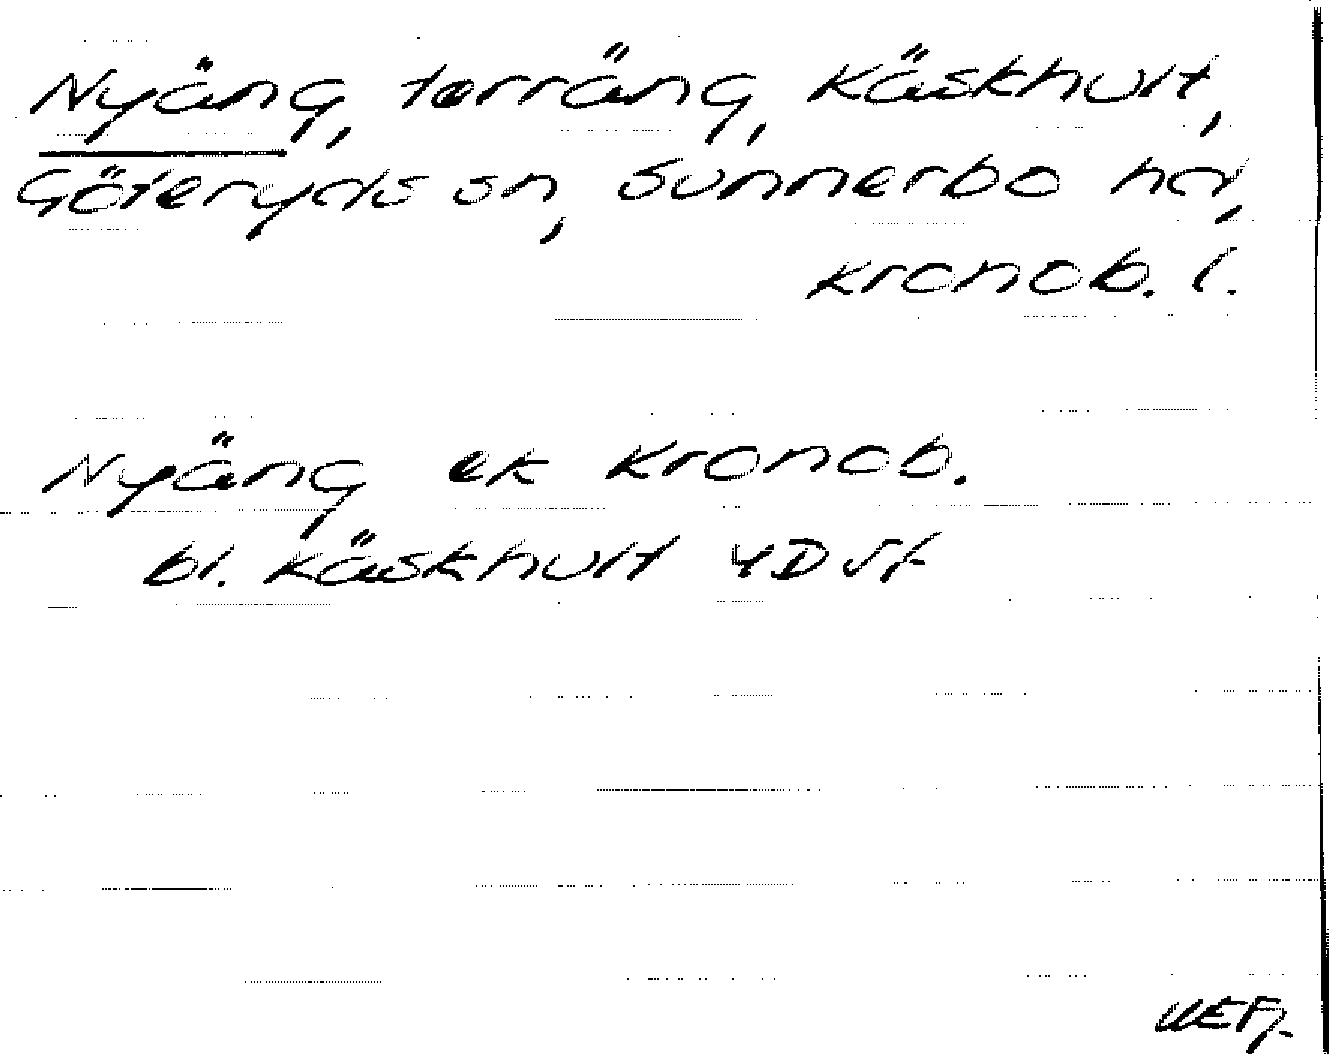 Nyäng, terräng, Käskhult,
Göteryds sn, Sunnerbo hd,
Kronob. l.
Nyäng ek Kronob.
bl. Käskhult 4D